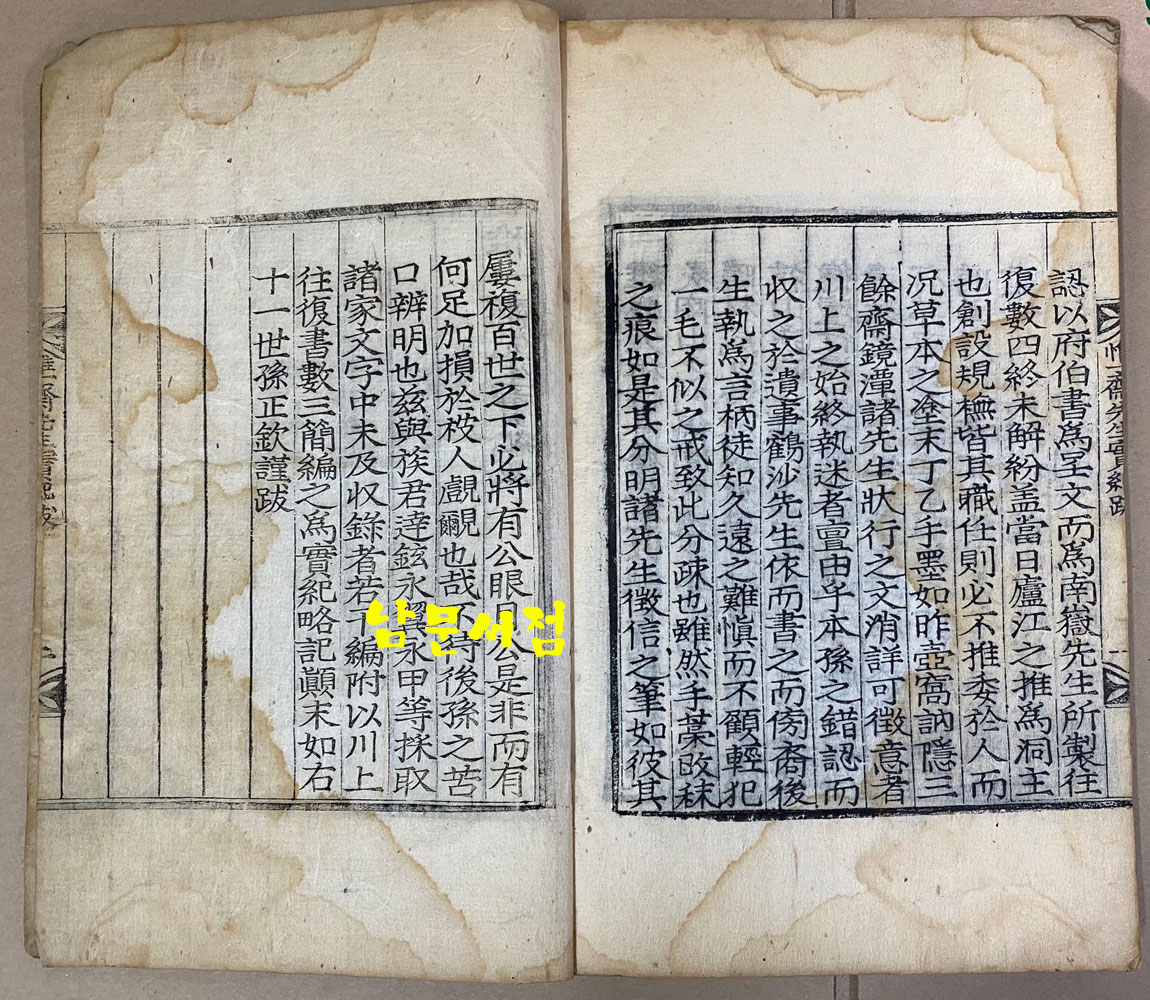 認以府伯書爲呈文而爲南嶽先生所製往
復數四終未解紛盖當日廬江之推爲洞主
也創設規橅皆其職任則必不推委於人而
况草本之塗末丁乙手墨如昨壺窩訥隱三
餘齋鏡潭諸先生狀行之文消詳可徵意者
川上之始終執迷者亶由乎本孫之錯認而
収之於遺事鶴沙先生依而書之而傍裔後
生執爲言柄徒知久遠之難愼而不顧輕犯
一毛不似之戒致此分疎也雖然手藁改秣
之痕如是其分明諸先生徵信之筆如彼其
屢複百世之下必將有公眼目公是非而有
何足加損於被人覰覸也哉不待後孫之苦
口辨明也玆與族君達鉉永翼永甲等採取
諸家文字中未及収錄者若干編附以川上
往復書數三簡編之爲實紀略記顚末如右
十一世孫正欽謹跋
惟一齋先生實紀跋
남문서점